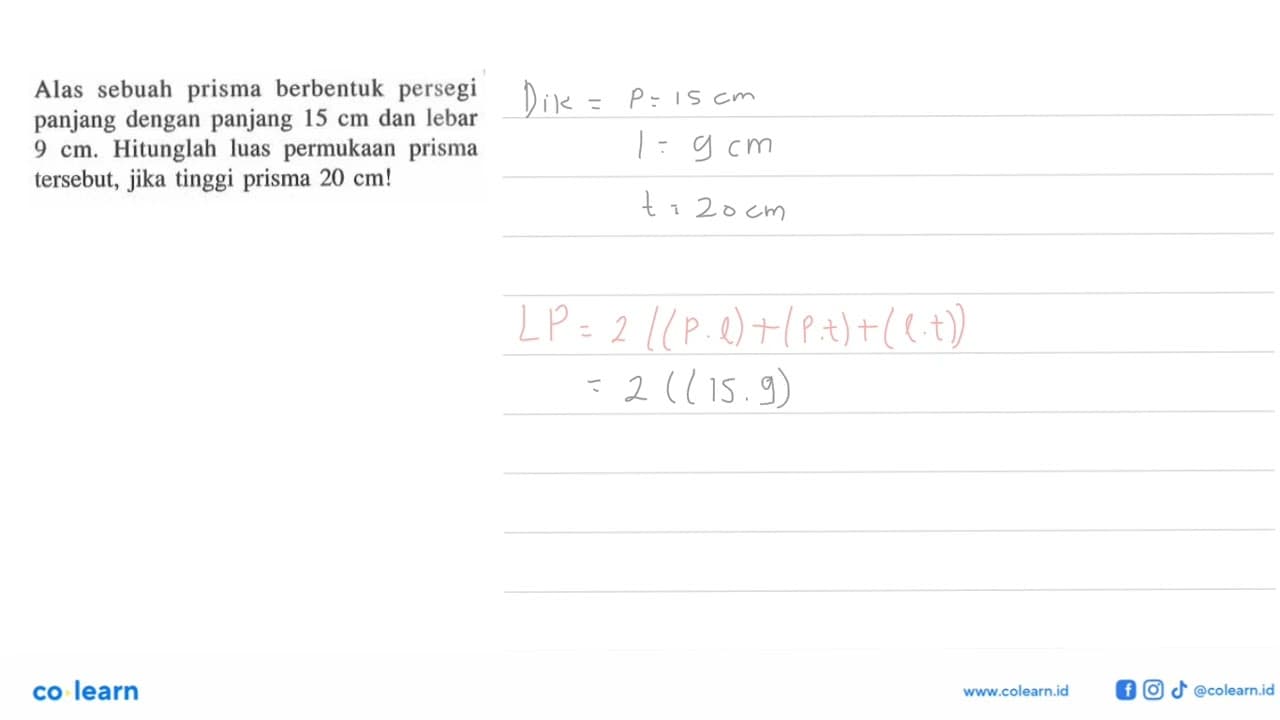 Alas sebuah prisma berbentuk persegi
panjang dengan panjang 15 cm dan lebar
9 cm. Hitunglah luas permukaan prisma
tersebut, jika tinggi prisma 20 cm!
Dik = P = 15 cm
l = 9 cm
t = 20 cm
LP = 2 ((P.l)+(P.t)+(l.t))
= 2 ((15.9)
co learn
www.colearn.id
@colearn.id